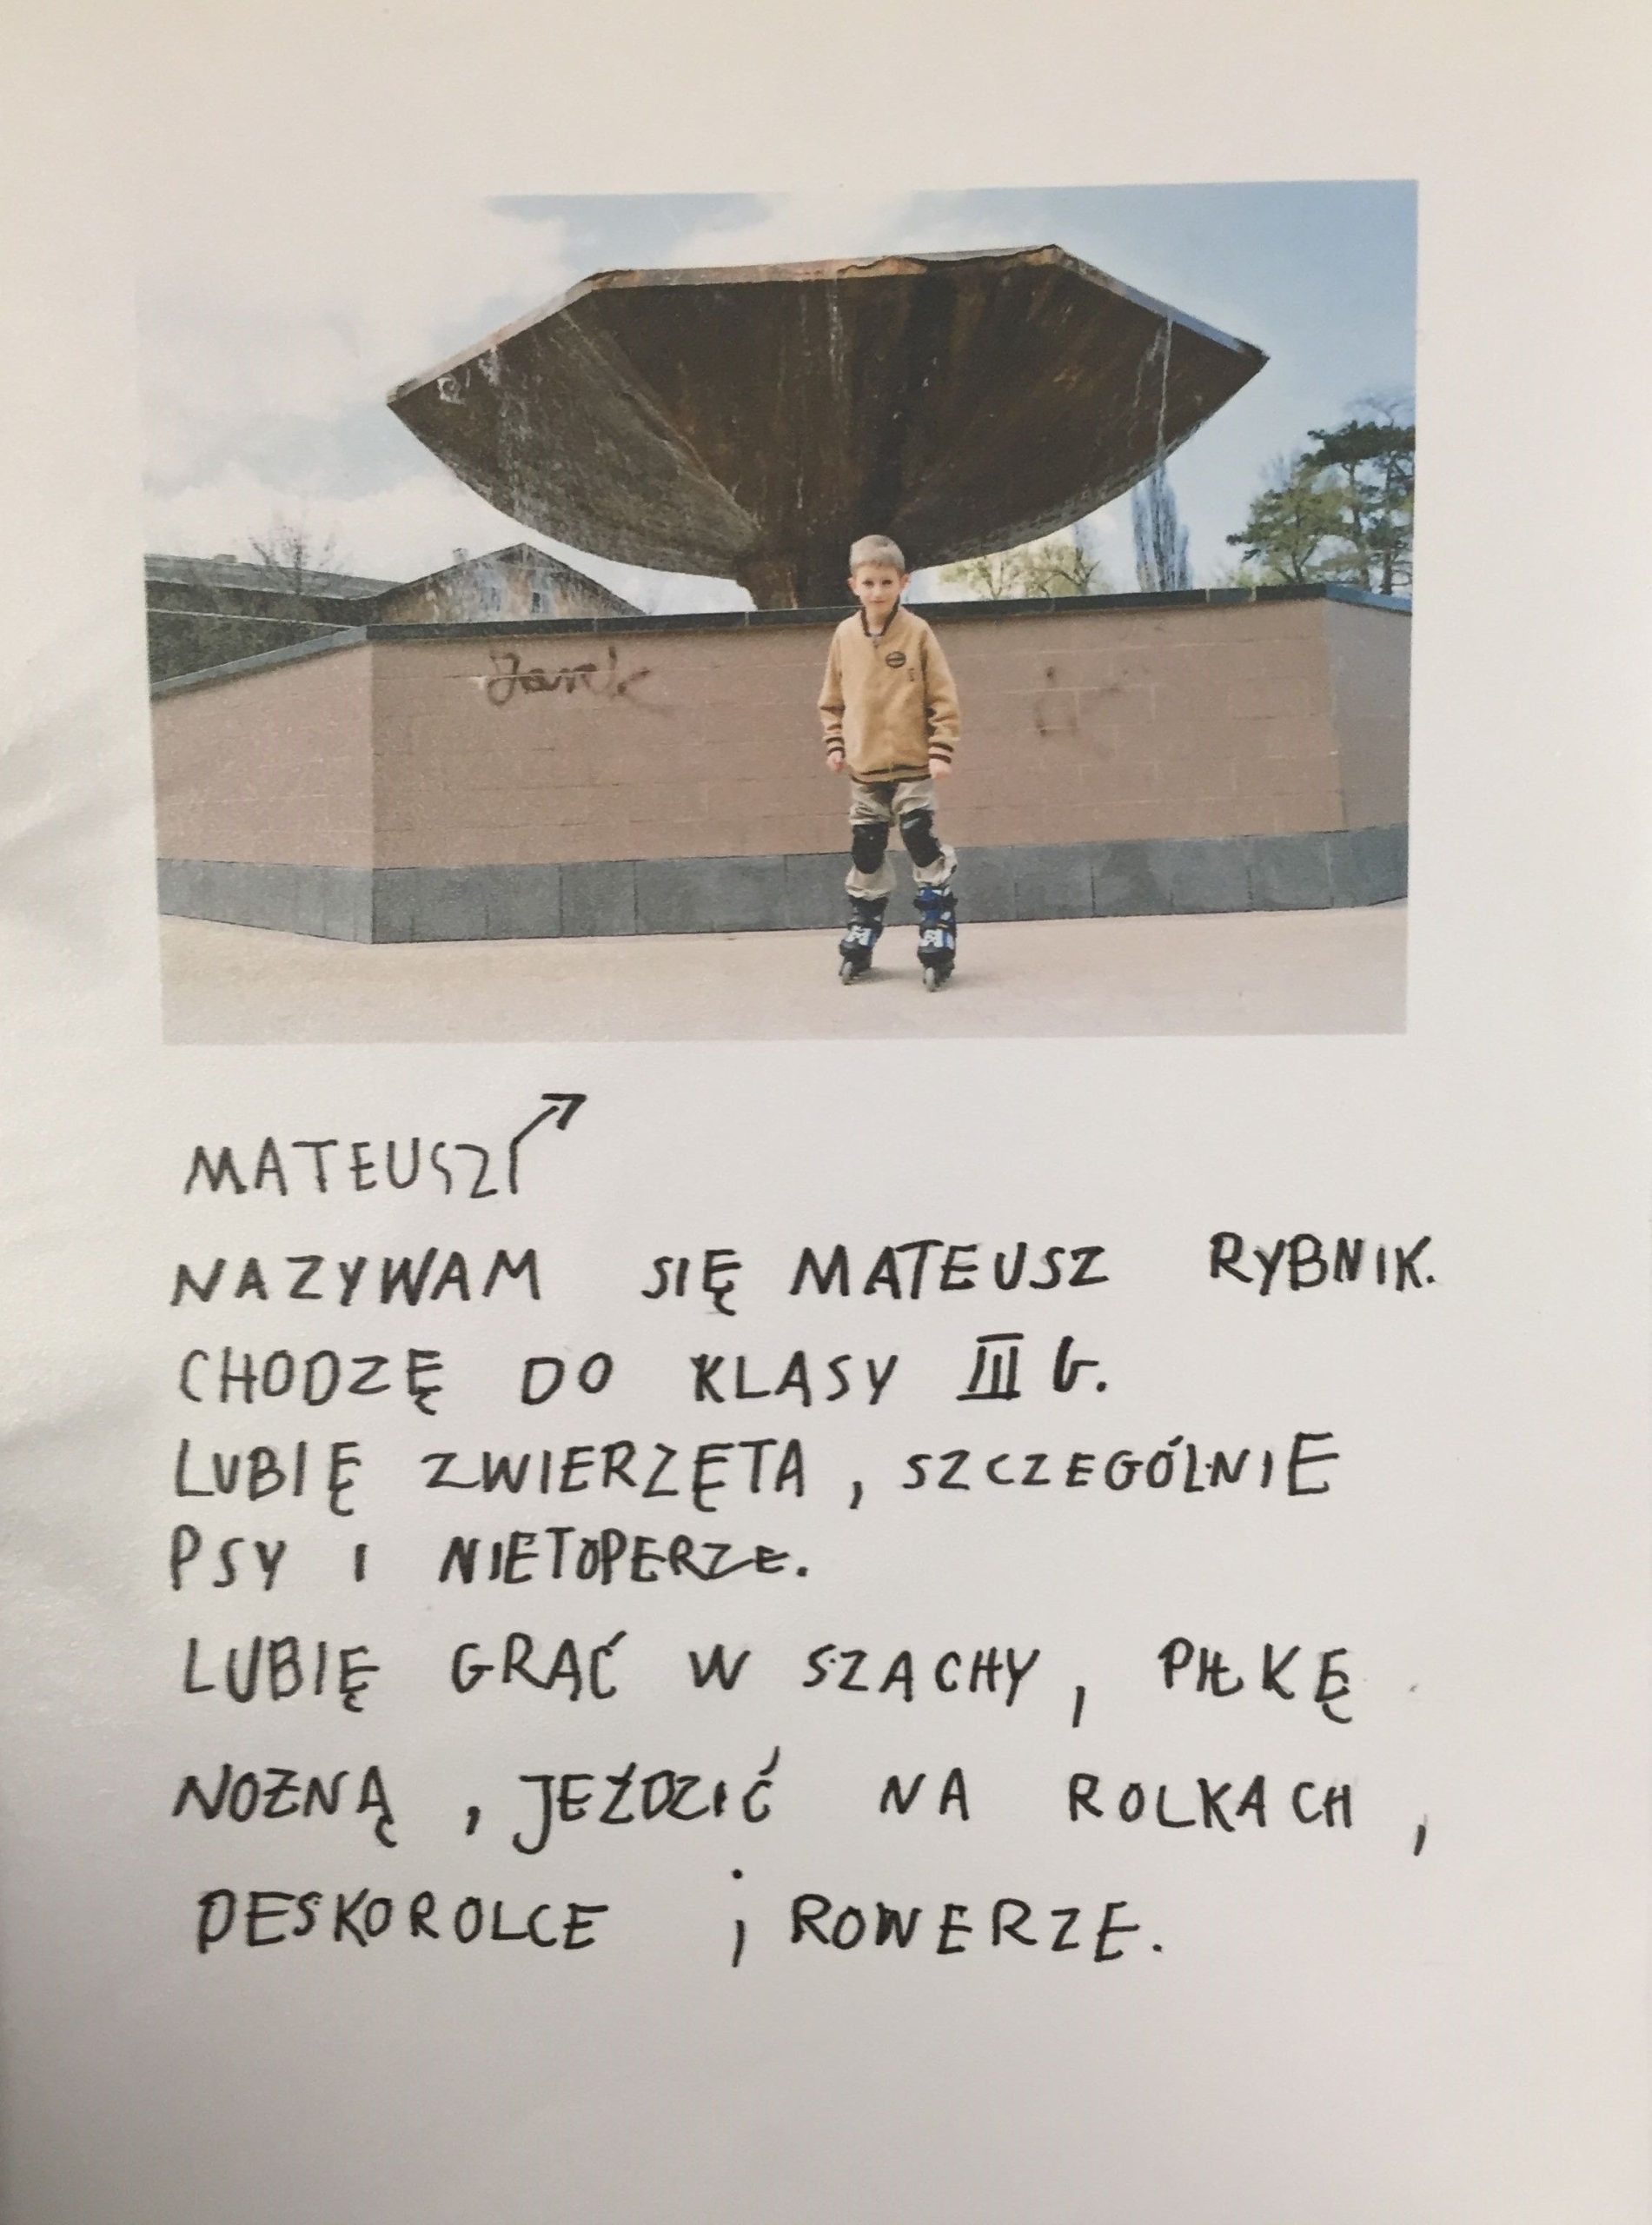 Jarek
MATEUSZ
NAZYWAM SIĘ MATEUSZ RYBNIK.
CHODZĘ DO KLASY III G.
LUBIĘ ZWIERZĘTA, SZCZEGÓLNIE
PSY I NIETOPERZE.
LUBIĘ GRĄĆ W SZACHY, PIŁKĘ
NOŻNĄ, JEŹDZIĆ NA ROLKACH,
DESKOROLCE i ROWERZE.